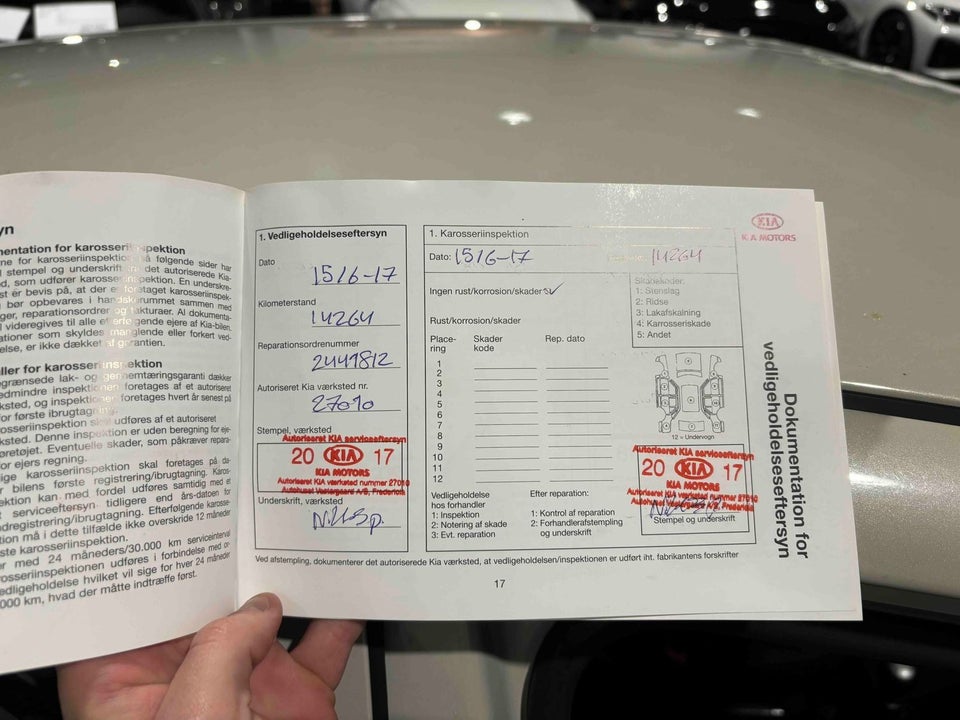 yn
mentation for karosseriinspektion
ne for karosseriinspektion på følgende sider har
stempel og underskrift den det autoriserede Kia-
d, som udfører karosseriinspektion. En underskre-
st er bevis på, at der er foretaget karosseriinspek-
bør opbevares i handskerummet sammen med
ger, reparationsordrer og fakturaer. Al dokumenta-
videregives til alle efterfølgende ejere af Kia-bilen.
ationer som skyldes manglende eller forkert ved-
else, er ikke dækket af garantien.
ller for karosseriinspektion
grænsede lak- og gennemtæringsgaranti dækker
edmindre inspektionen foretages af et autoriseret
ksted, og inspektionen foretages hvert år senest på
or første ibrugtagning.
osseriinspektion skal udføres af et autoriseret
ksted. Denne inspektion er uden beregning for eje-
øretøjet. Eventuelle skader, som påkræver repara-
or ejers regning.
lige karosseriinspektion skal foretages på da-
bilens første registrering/ibrugtagning. Karos-
ektion kan med fordel udføres samtidig med et
serviceeftersyn tidligere end års-datoen for
dregistrering/ibrugtagning. Efterfølgende karosse-
tion må i dette tilfælde ikke overskride 12 måneder
ste karosseriinspektion.
r med 24 måneders/30.000 km serviceinterval
osseriinspektionen udføres i forbindelse med
edligeholdelse hvilket vil sige for hver 24 måneder
000 km, hvad der måtte indtræffe først.
1. Vedligeholdelseseftersyn
Dato
15/6-17
Kilometerstand
14264
Reparationsordrenummer
2449812
Autoriseret Kia værksted nr.
27010
Stempel, værksted
Autoriseret KIA serviceeftersyn
20 KIA 17
KIA MOTORS
Autoriseret KIA værksted nummer 27010
Autohuset Vestergaard A/S, Fredericia
Underskrift, værksted
1. Karosseriinspektion
Dato: 15/6-17
14264
Ingen rust/korrosion/skader
Rust/korrosion/skader
Place-
ring
Skader
kode
Rep. dato
1
2
3
4
5
6
7
8
9
10
11
12
Skadekoder:
1: Stenslag
2: Ridse
3: Lakafskalning
4: Karosseriskade
5: Andet
12 = Undervogn
Vedligeholdelse
hos forhandler
1: Inspektion
2: Notering af skade
3: Evt. reparation
Efter reparation:
1: Kontrol af reparation
2: Forhandlerafstempling
og underskrift
Autoriseret KIA serviceeftersyn
20 KIA 17
KIA MOTORS
Autoriseret KIA værksted nummer 27010
Autohuset Vestergaard A/S, Fredericia
Stempel og underskrift
Ved afstempling, dokumenterer det autoriserede Kia værksted, at vedligeholdelsen/inspektionen er udført iht. fabrikantens forskrifter
17
KIA
KIA MOTORS
Dokumentation for
vedligeholdelseseftersyn